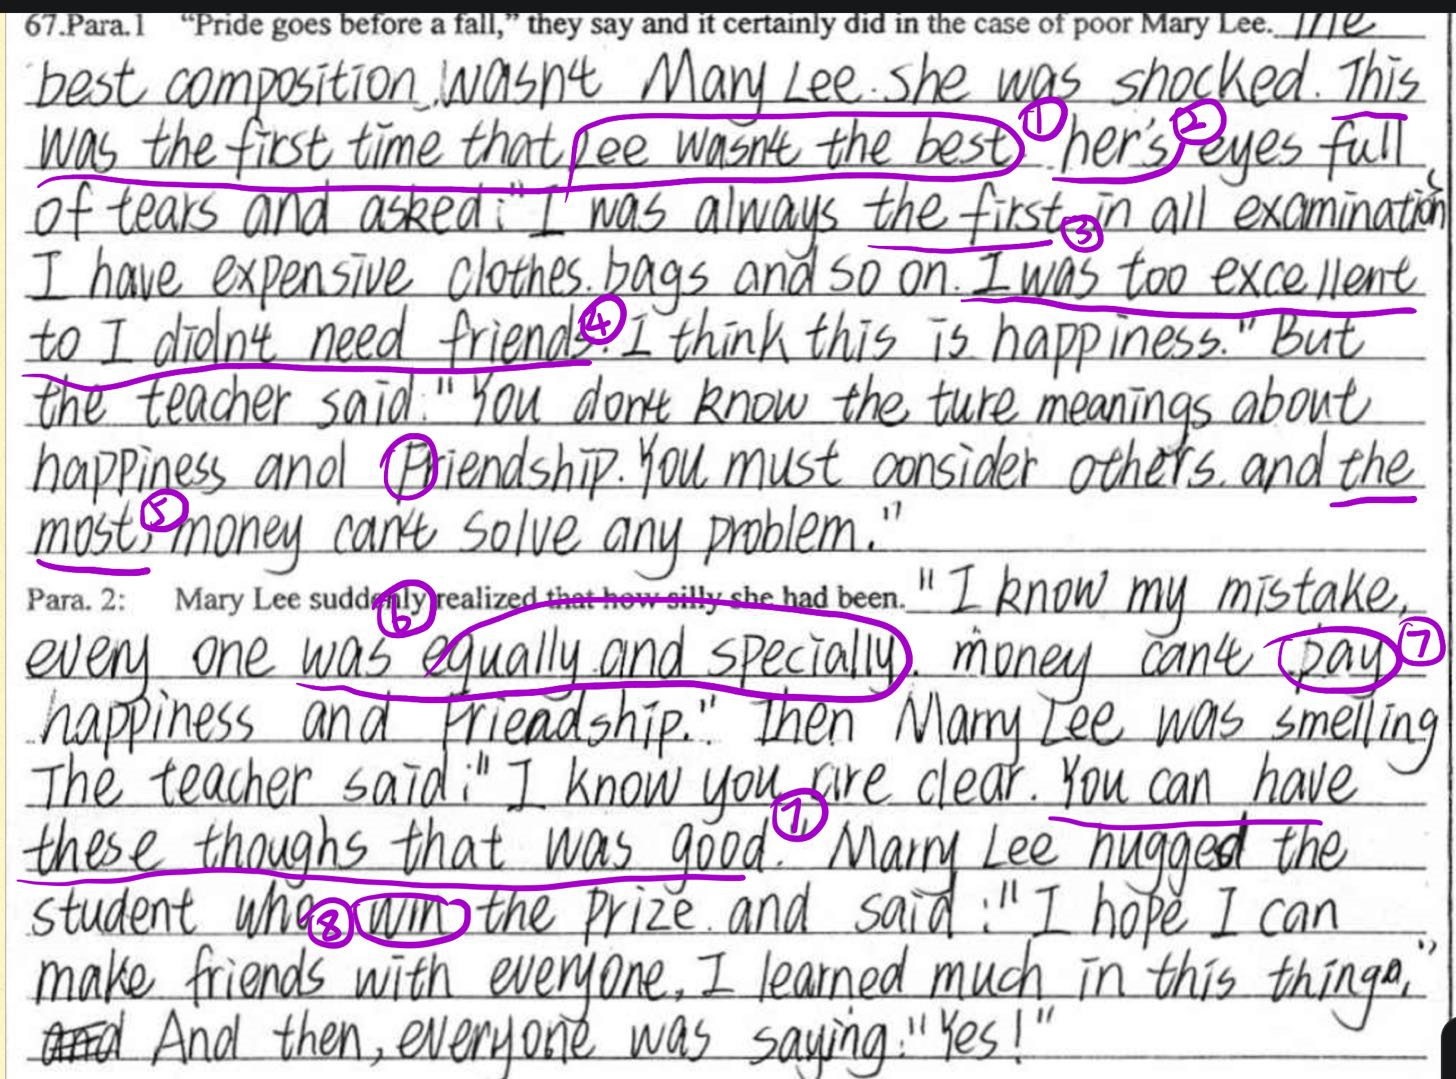 67.Para.1 “Pride goes before a fall,” they say and it certainly did in the case of poor Mary Lee. The
best composition wasn't Mary Lee. She was shocked. This
was the first time that Lee wasn't the best ① her's ② eyes full
of tears and asked: "I was always the first ③ in all examination
I have expensive clothes. bags and so on. I was too excellent
to I didn't need friends ④. I think this is happiness." But
the teacher said: "You don't know the ture meanings about
happiness and Friendship. You must consider others. and the
most, ⑤ money can't solve any problem."
Para. 2: Mary Lee suddenly realized that how silly she had been. "I know my mistake,
⑥
every one was equally and specially. money can't pay ⑦
happiness and Friendship." Then Marry Lee was smelling
The teacher said: "I know you are clear. You can have
these thoughs that was good. ⑦ Marry Lee hugged the
student who ⑧ win the prize and said: "I hope I can
make friends with everyone, I learned much in this things."
and And then, everyone was saying: "Yes!"